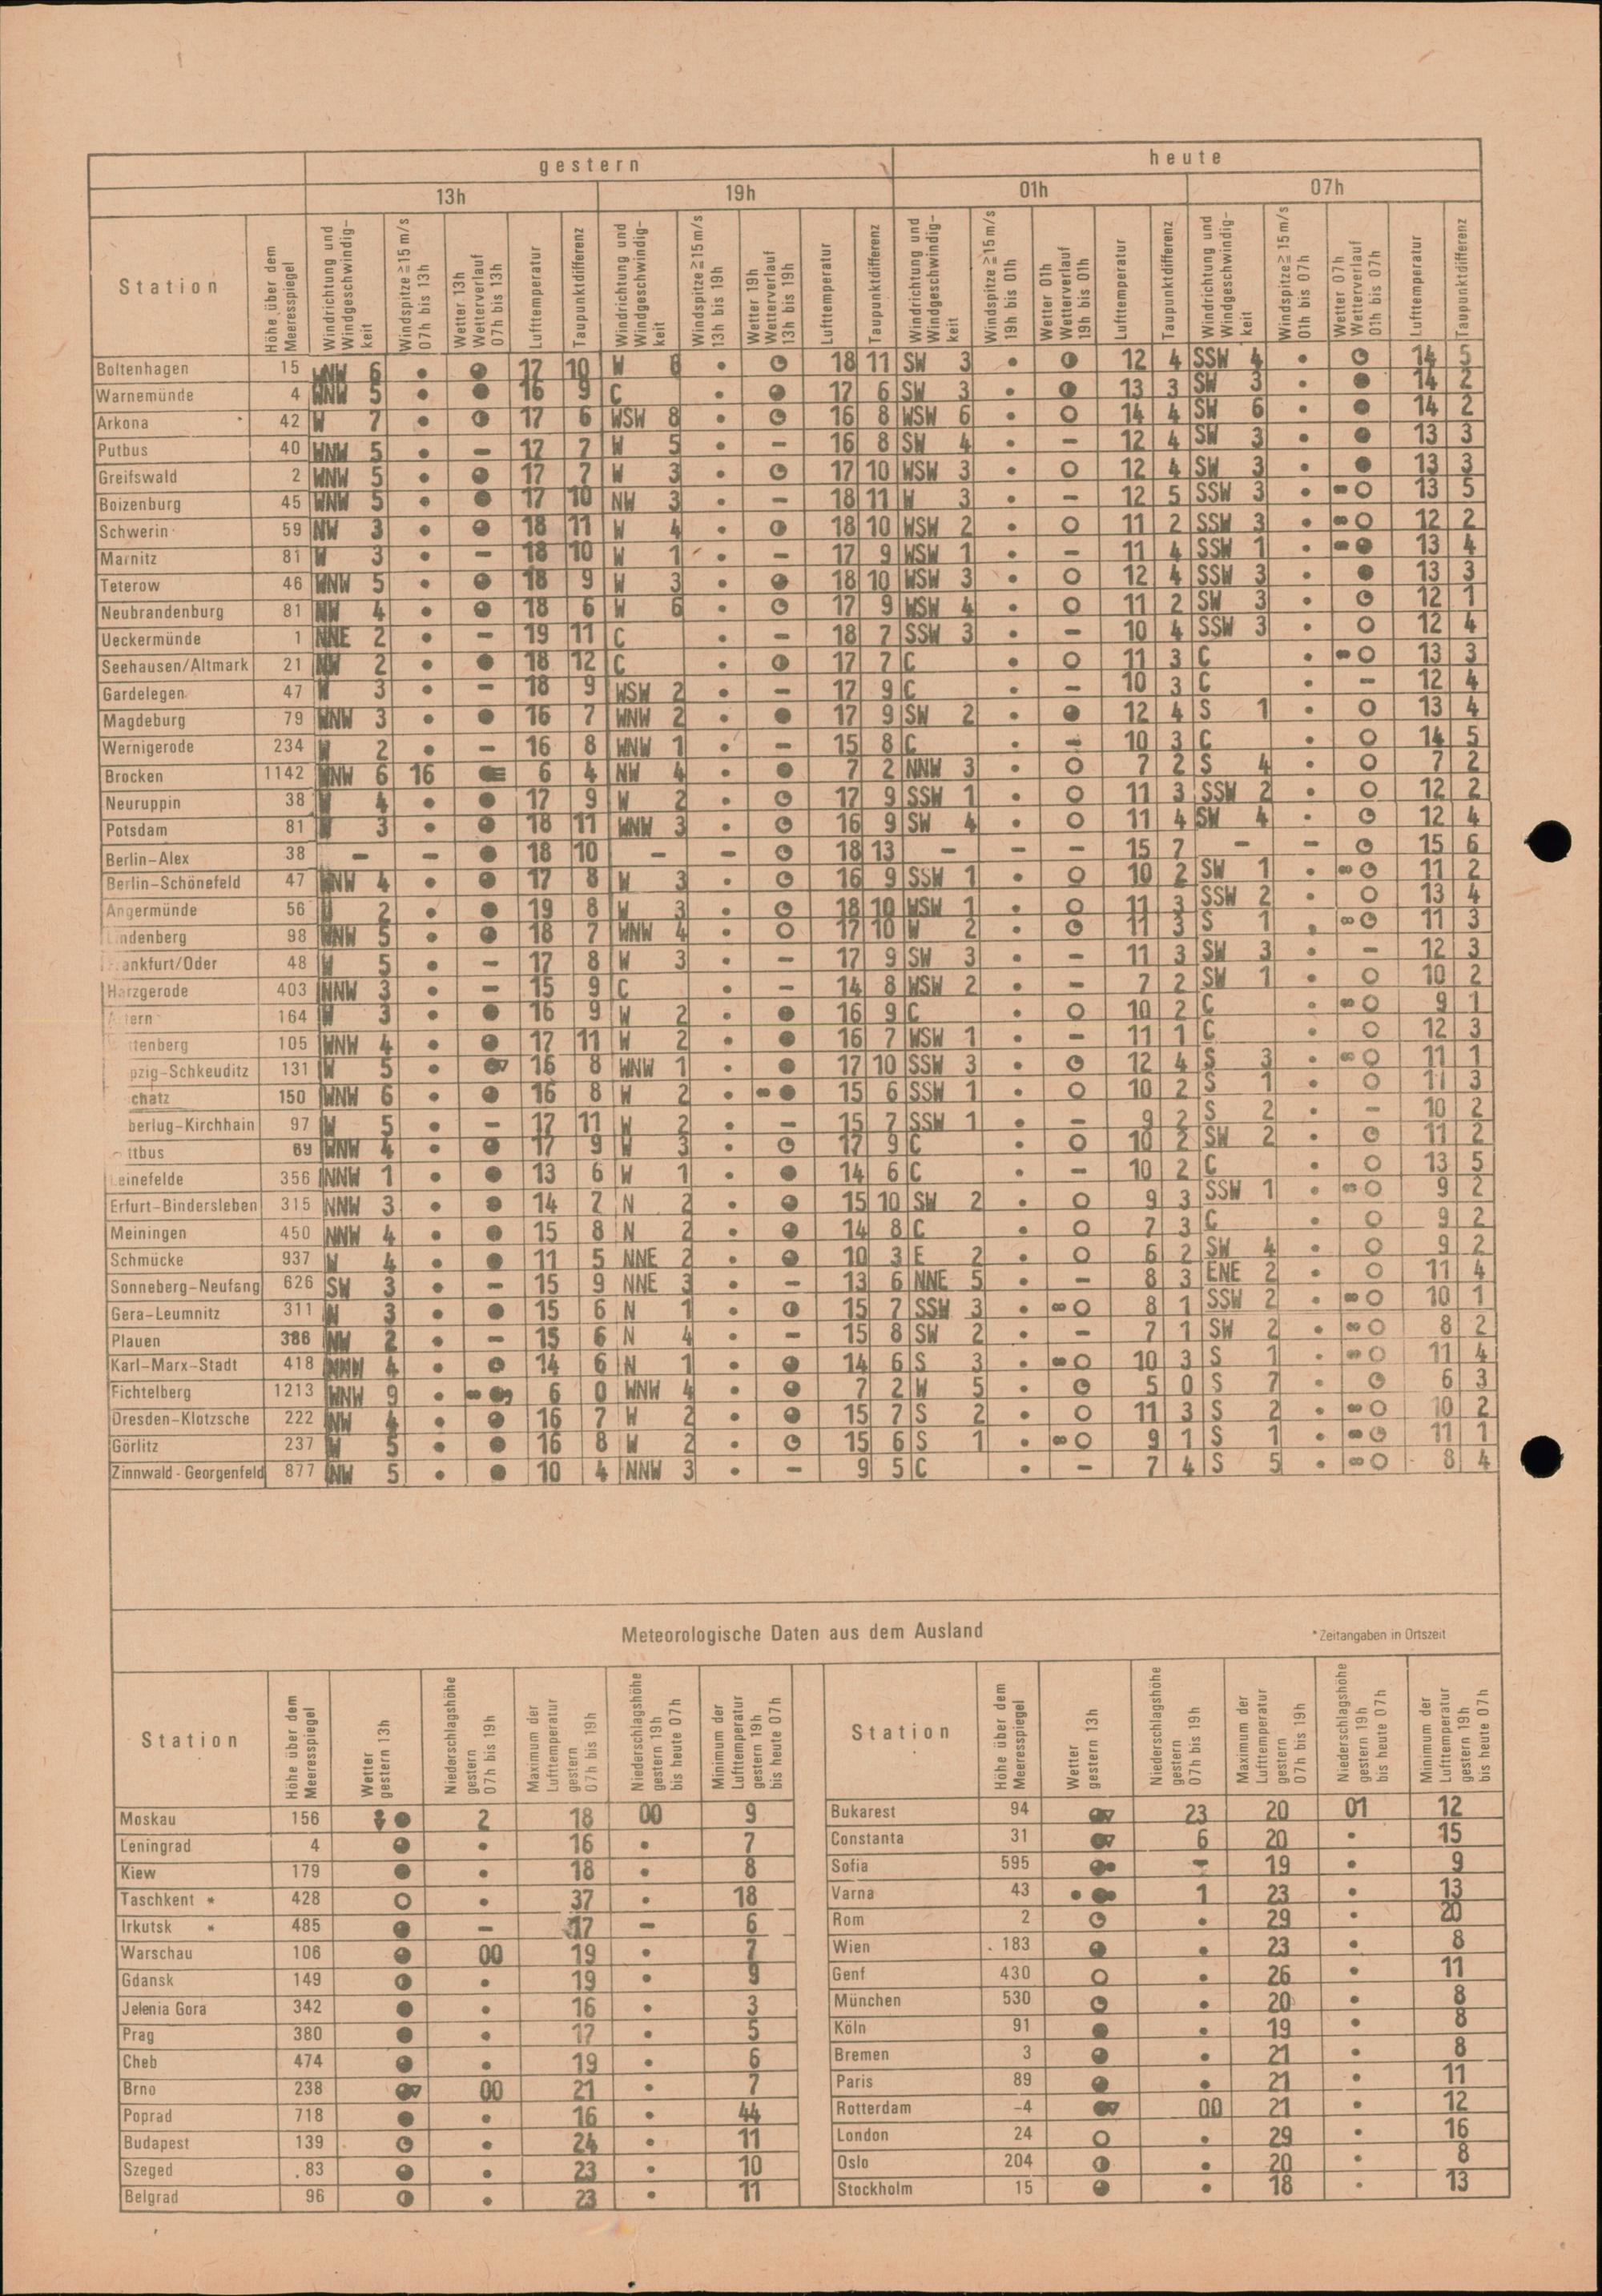 gestern heute
13h 19h 01h 07h
Station
Höhe über dem Meeresspiegel
Windrichtung und Windgeschwindig-keit
Windspitze ≧ 15 m/s 07h bis 13h
Wetter 13h Wetterverlauf 07h bis 13h
Lufttemperatur
Taupunktdifferenz
Windrichtung und Windgeschwindig-keit
Windspitze ≧ 15 m/s 13h bis 19h
Wetter 19h Wetterverlauf 13h bis 19h
Lufttemperatur
Taupunktdifferenz
Windrichtung und Windgeschwindig-keit
Windspitze ≧ 15 m/s 19h bis 01h
Wetter 01h Wetterverlauf 19h bis 01h
Lufttemperatur
Taupunktdifferenz
Windrichtung und Windgeschwindig-keit
Windspitze ≧ 15 m/s 01h bis 07h
Wetter 07h Wetterverlauf 01h bis 07h
Lufttemperatur
Taupunktdifferenz
Boltenhagen 15 WNW 6 17 10 W 18 11 SW 3 12 4 SSW 4 14 5
Warnemünde 4 WNW 5 16 9 C 17 6 SW 3 13 3 SW 3 14 2
Arkona 42 W 7 17 6 WSW 8 16 8 WSW 6 14 4 SW 6 14 2
Putbus 40 WNW 5 – 17 7 W 5 – 16 8 SW 4 – 12 4 SW 3 13 3
Greifswald 2 WNW 5 17 7 W 3 17 10 WSW 3 12 4 SW 3 13 3
Boizenburg 45 WNW 5 17 10 NW 3 – 18 11 W 3 – 12 5 SSW 3 13 5
Schwerin 59 NW 3 18 11 W 4 18 10 WSW 2 11 2 SSW 3 12 2
Marnitz 81 W 3 – 18 10 W 1 – 17 9 WSW 1 – 11 4 SSW 1 13 4
Teterow 46 WNW 5 18 9 W 3 18 10 WSW 3 12 4 SSW 3 13 3
Neubrandenburg 81 NW 4 18 6 W 6 17 9 WSW 4 11 2 SW 3 12 1
Ueckermünde 1 NNE 2 – 19 11 C – 18 7 SSW 3 – 10 4 SSW 3 12 4
Seehausen/Altmark 21 NW 2 18 12 C 17 7 C 11 3 C 13 3
Gardelegen 47 W 3 – 18 9 WSW 2 – 17 9 C – 10 3 C – 12 4
Magdeburg 79 WNW 3 16 7 WNW 2 17 9 SW 2 12 4 S 1 13 4
Wernigerode 234 W 2 – 16 8 WNW 1 – 15 8 C – 10 3 C 14 5
Brocken 1142 WNW 6 16 6 4 NW 4 7 2 NNW 3 7 2 S 4 7 2
Neuruppin 38 W 4 17 9 W 2 17 9 SSW 1 11 3 SSW 2 12 2
Potsdam 81 W 3 18 11 WNW 3 16 9 SW 4 11 4 SW 4 12 4
Berlin-Alex 38 – – 18 10 – – 18 13 – – – 15 7 – – 15 6
Berlin-Schönefeld 47 WNW 4 17 8 W 3 16 9 SSW 1 10 2 SW 1 11 2
Angermünde 56 2 19 8 W 3 18 10 WSW 1 11 3 SSW 2 13 4
ndenberg 98 WNW 5 18 7 WNW 4 17 10 W 2 11 3 S 1 11 3
ankfurt/Oder 48 W 5 – 17 8 W 3 – 17 9 SW 3 – 11 3 SW 3 – 12 3
Harzgerode 403 NNW 3 – 15 9 C – 14 8 WSW 2 – 7 2 SW 1 10 2
tern 164 W 3 16 9 W 2 16 9 C 10 2 C 9 1
tenberg 105 WNW 4 17 11 W 2 16 7 WSW 1 – 11 1 C 12 3
pzig-Schkeuditz 131 W 5 16 8 WNW 1 17 10 SSW 3 12 4 S 3 11 1
chatz 150 WNW 6 16 8 W 2 15 6 SSW 1 10 2 S 1 11 3
berlug-Kirchhain 97 W 5 – 17 11 W 2 – 15 7 SSW 1 – 9 2 S 2 – 10 2
ttbus 69 WNW 4 17 9 W 3 17 9 C 10 2 SW 2 11 2
Leinefelde 356 NNW 1 13 6 W 1 14 6 C – 10 2 C 13 5
Erfurt-Bindersleben 315 NNW 3 14 7 N 2 15 10 SW 2 9 3 SSW 1 9 2
Meiningen 450 NNW 4 15 8 N 2 14 8 C 7 3 C 9 2
Schmücke 937 W 4 11 5 NNE 2 10 3 E 2 6 2 SW 4 9 2
Sonneberg-Neufang 626 SW 3 – 15 9 NNE 3 – 13 6 NNE 5 – 8 3 ENE 2 11 4
Gera-Leumnitz 311 3 15 6 N 1 15 7 SSW 3 8 1 SSW 2 10 1
Plauen 386 NW 2 – 15 6 N 4 – 15 8 SW 2 – 7 1 SW 2 8 2
Karl-Marx-Stadt 418 NNW 4 14 6 N 1 14 6 S 3 10 3 S 1 11 4
Fichtelberg 1213 WNW 9 6 0 WNW 4 7 2 W 5 5 0 S 7 6 3
Dresden-Klotzsche 222 NW 4 16 7 W 2 15 7 S 2 11 3 S 2 10 2
Görlitz 237 W 5 16 8 W 2 15 6 S 1 9 1 S 1 11 1
Zinnwald-Georgenfeld 877 NW 5 10 4 NNW 3 – 9 5 C – 7 4 S 5 8 4
Meteorologische Daten aus dem Ausland
*Zeitangaben in Ortszeit
Station
Höhe über dem Meeresspiegel
Wetter gestern 13h
Niederschlagshöhe gestern 07h bis 19h
Maximum der Lufttemperatur gestern 07h bis 19h
Niederschlagshöhe gestern 19h bis heute 07h
Minimum der Lufttemperatur gestern 19h bis heute 07h
Moskau 156 2 18 00 9
Leningrad 4 • 16 • 7
Kiew 179 • 18 • 8
Taschkent * 428 • 37 • 18
Irkutsk * 485 – 17 – 6
Warschau 106 00 19 • 7
Gdansk 149 • 19 • 9
Jelenia Gora 342 • 16 • 3
Prag 380 • 17 • 5
Cheb 474 • 19 • 6
Brno 238 00 21 • 7
Poprad 718 • 16 • 44
Budapest 139 • 24 • 11
Szeged 83 • 23 • 10
Belgrad 96 • 23 • 11
Station
Höhe über dem Meeresspiegel
Wetter gestern 13h
Niederschlagshöhe gestern 07h bis 19h
Maximum der Lufttemperatur gestern 07h bis 19h
Niederschlagshöhe gestern 19h bis heute 07h
Minimum der Lufttemperatur gestern 19h bis heute 07h
Bukarest 94 23 20 01 12
Constanta 31 6 20 • 15
Sofia 595 – 19 • 9
Varna 43 1 23 • 13
Rom 2 • 29 • 20
Wien 183 • 23 • 8
Genf 430 • 26 • 11
München 530 • 20 • 8
Köln 91 • 19 • 8
Bremen 3 • 21 • 8
Paris 89 • 21 • 11
Rotterdam -4 00 21 • 12
London 24 • 29 • 16
Oslo 204 • 20 • 8
Stockholm 15 • 18 • 13